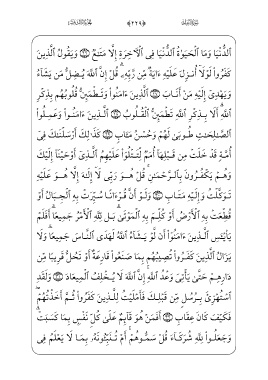 ٱلدُّنْيَا وَمَا ٱلْحَيَوٰةُ ٱلدُّنْيَا فِى ٱلْـَٔاخِرَةِ إِلَّا مَتَـٰعٌ ۝ وَيَقُولُ ٱلَّذِينَ
كَفَرُوا۟ لَوْلَآ أُنزِلَ عَلَيْهِ ءَايَةٌ مِّن رَّبِّهِۦ ۗ قُلْ إِنَّ ٱللَّهَ يُضِلُّ مَن يَشَآءُ
وَيَهْدِىٓ إِلَيْهِ مَنْ أَنَابَ ۝ ٱلَّذِينَ ءَامَنُوا۟ وَتَطْمَئِنُّ قُلُوبُهُم بِذِكْرِ
ٱللَّهِ ۗ أَلَا بِذِكْرِ ٱللَّهِ تَطْمَئِنُّ ٱلْقُلُوبُ ۝ ٱلَّذِينَ ءَامَنُوا۟ وَعَمِلُوا۟
ٱلصَّـٰلِحَـٰتِ طُوبَىٰ لَهُمْ وَحُسْنُ مَـَٔابٍ ۝ كَذَٰلِكَ أَرْسَلْنَـٰكَ فِىٓ
أُمَّةٍ قَدْ خَلَتْ مِن قَبْلِهَآ أُمَمٌ لِّتَتْلُوَا۟ عَلَيْهِمُ ٱلَّذِىٓ أَوْحَيْنَآ إِلَيْكَ
وَهُمْ يَكْفُرُونَ بِٱلرَّحْمَـٰنِ ۚ قُلْ هُوَ رَبِّى لَآ إِلَـٰهَ إِلَّا هُوَ عَلَيْهِ
تَوَكَّلْتُ وَإِلَيْهِ مَتَابِ ۝ وَلَوْ أَنَّ قُرْءَانًا سُيِّرَتْ بِهِ ٱلْجِبَالُ أَوْ
قُطِّعَتْ بِهِ ٱلْأَرْضُ أَوْ كُلِّمَ بِهِ ٱلْمَوْتَىٰ ۗ بَل لِّلَّهِ ٱلْأَمْرُ جَمِيعًا ۗ أَفَلَمْ
يَا۟يْـَٔسِ ٱلَّذِينَ ءَامَنُوٓا۟ أَن لَّوْ يَشَآءُ ٱللَّهُ لَهَدَى ٱلنَّاسَ جَمِيعًا ۗ وَلَا
يَزَالُ ٱلَّذِينَ كَفَرُوا۟ تُصِيبُهُم بِمَا صَنَعُوا۟ قَارِعَةٌ أَوْ تَحُلُّ قَرِيبًا مِّن
دَارِهِمْ حَتَّىٰ يَأْتِىَ وَعْدُ ٱللَّهِ ۚ إِنَّ ٱللَّهَ لَا يُخْلِفُ ٱلْمِيعَادَ ۝ وَلَقَدِ
ٱسْتُهْزِئَ بِرُسُلٍ مِّن قَبْلِكَ فَأَمْلَيْتُ لِلَّذِينَ كَفَرُوا۟ ثُمَّ أَخَذْتُهُمْ ۖ
فَكَيْفَ كَانَ عِقَابِ ۝ أَفَمَنْ هُوَ قَآئِمٌ عَلَىٰ كُلِّ نَفْسٍۭ بِمَا كَسَبَتْ ۗ
وَجَعَلُوا۟ لِلَّهِ شُرَكَآءَ قُلْ سَمُّوهُمْ ۚ أَمْ تُنَبِّـُٔونَهُۥ بِمَا لَا يَعْلَمُ فِى